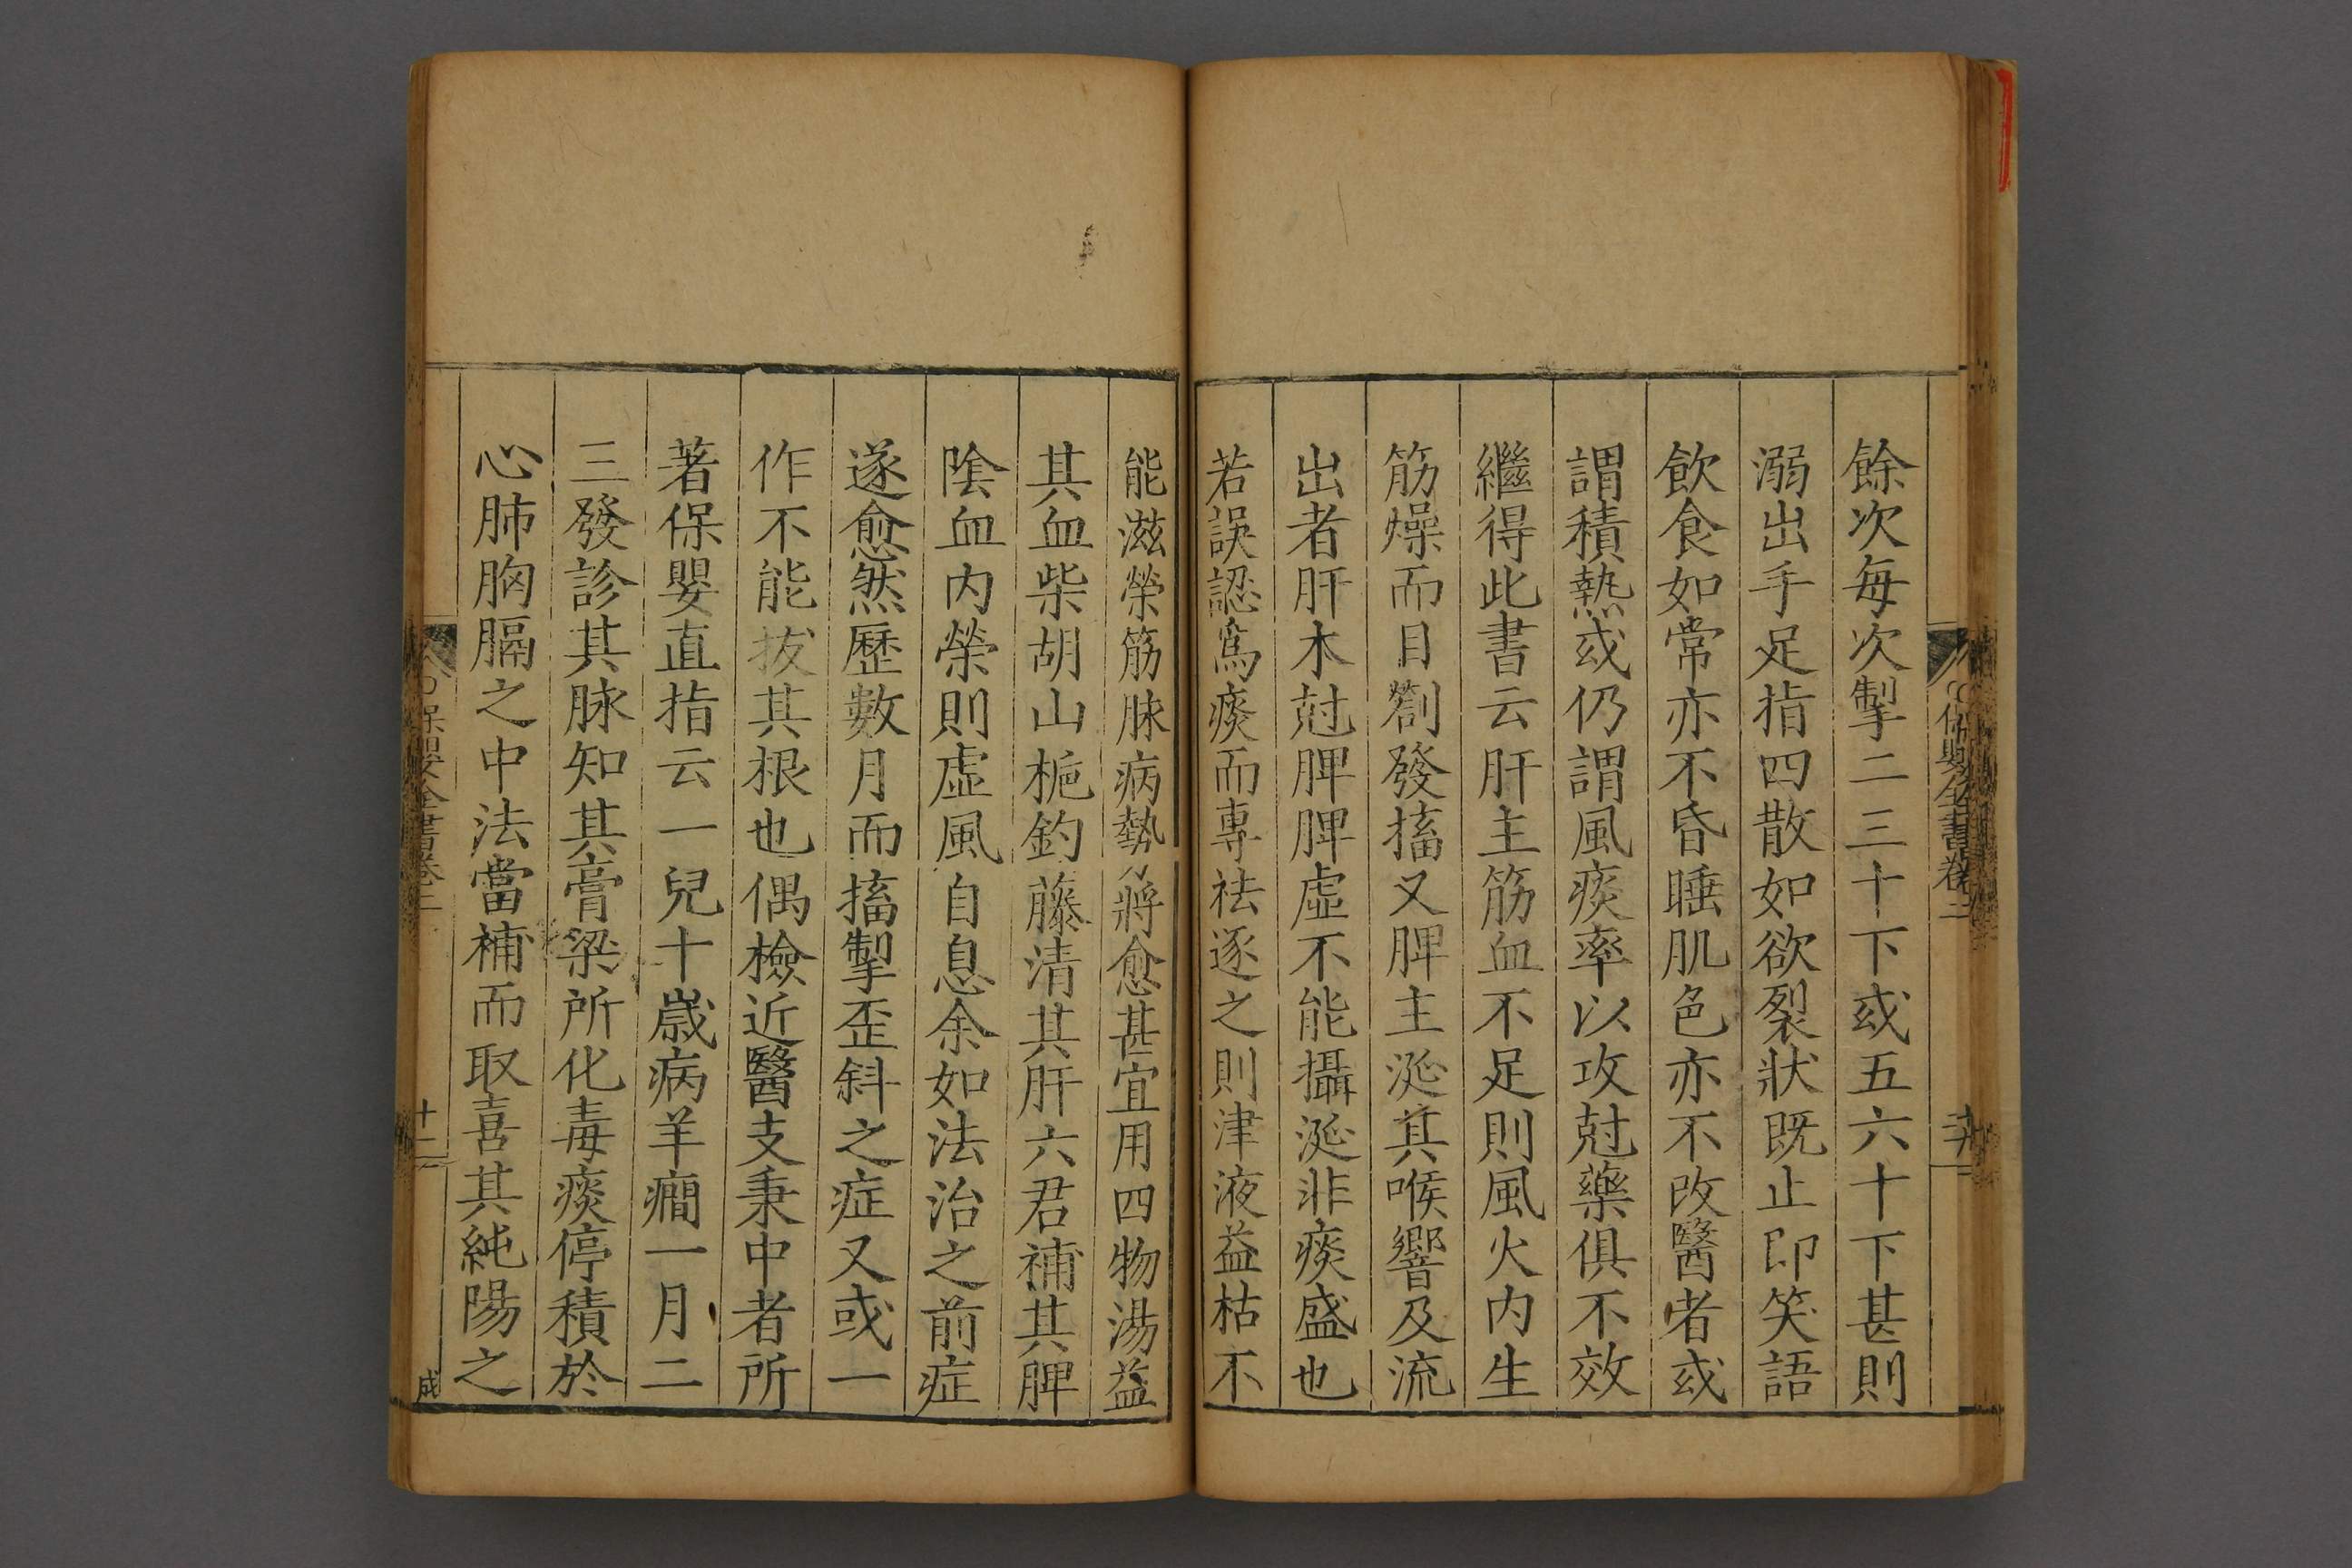 餘次每次掣二三十下或五六十下甚則
溺出手足指四散如欲裂狀既止即笑語
飲食如常亦不昏睡肌色亦不改醫者或
謂積熱或仍謂風痰率以攻尅藥俱不效
繼得此書云肝主筋血不足則風火內生
筋燥而目劄發搐又脾主涎其喉響及流
出者肝木尅脾脾虛不能攝涎非痰盛也
若誤認為痰而專祛逐之則津液益枯不
能滋榮筋脉病勢將愈甚宜用四物湯益
其血柴胡山梔釣藤清其肝六君補其脾
陰血內榮則虛風自息余如法治之前症
遂愈然歷數月而搐掣歪斜之症又或一
作不能拔其根也偶檢近醫支秉中者所
著保嬰直指云一兒十歲病羊癎一月二
三發診其脉知其膏梁所化毒痰停積於
心肺胸膈之中法當補而取喜其純陽之
保嬰全書卷二
十二
成